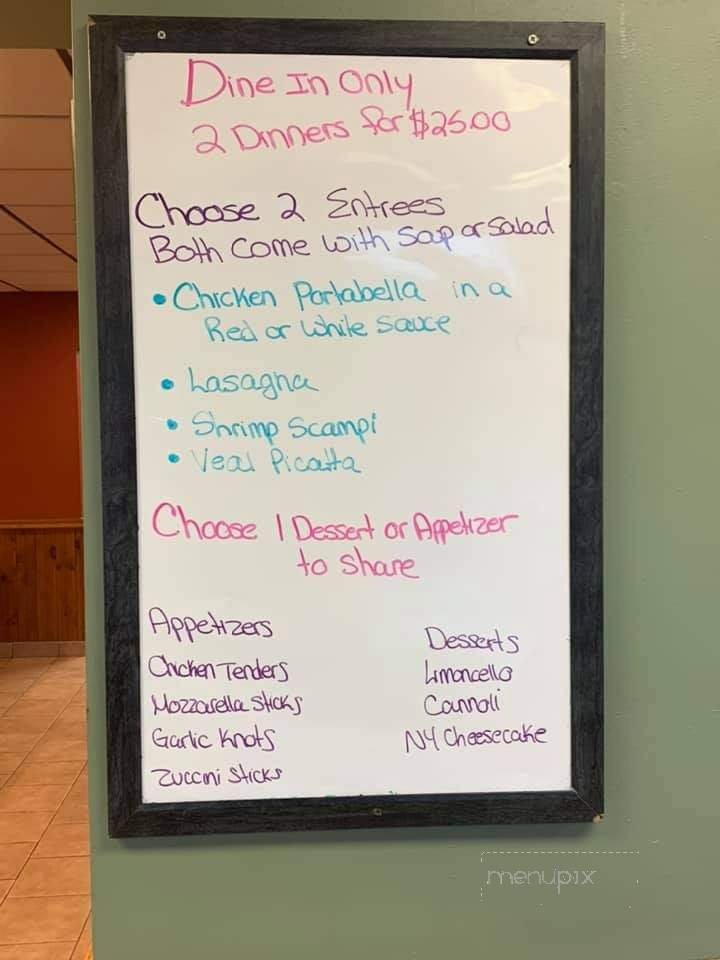 Dine In Only
2 Dinners for $25.00
Choose 2 Entrees
Both Come with Soup or Salad
• Chicken Portabella in a
Red or White Sauce
• Lasagna
• Shrimp Scampi
• Veal Picatta
Choose 1 Dessert or Appetizer
to Share
Appetizers
Chicken Tenders
Mozzarella Sticks
Garlic Knots
Zuccini Sticks
Desserts
Limoncello
Cannoli
NY Cheesecake
menupix